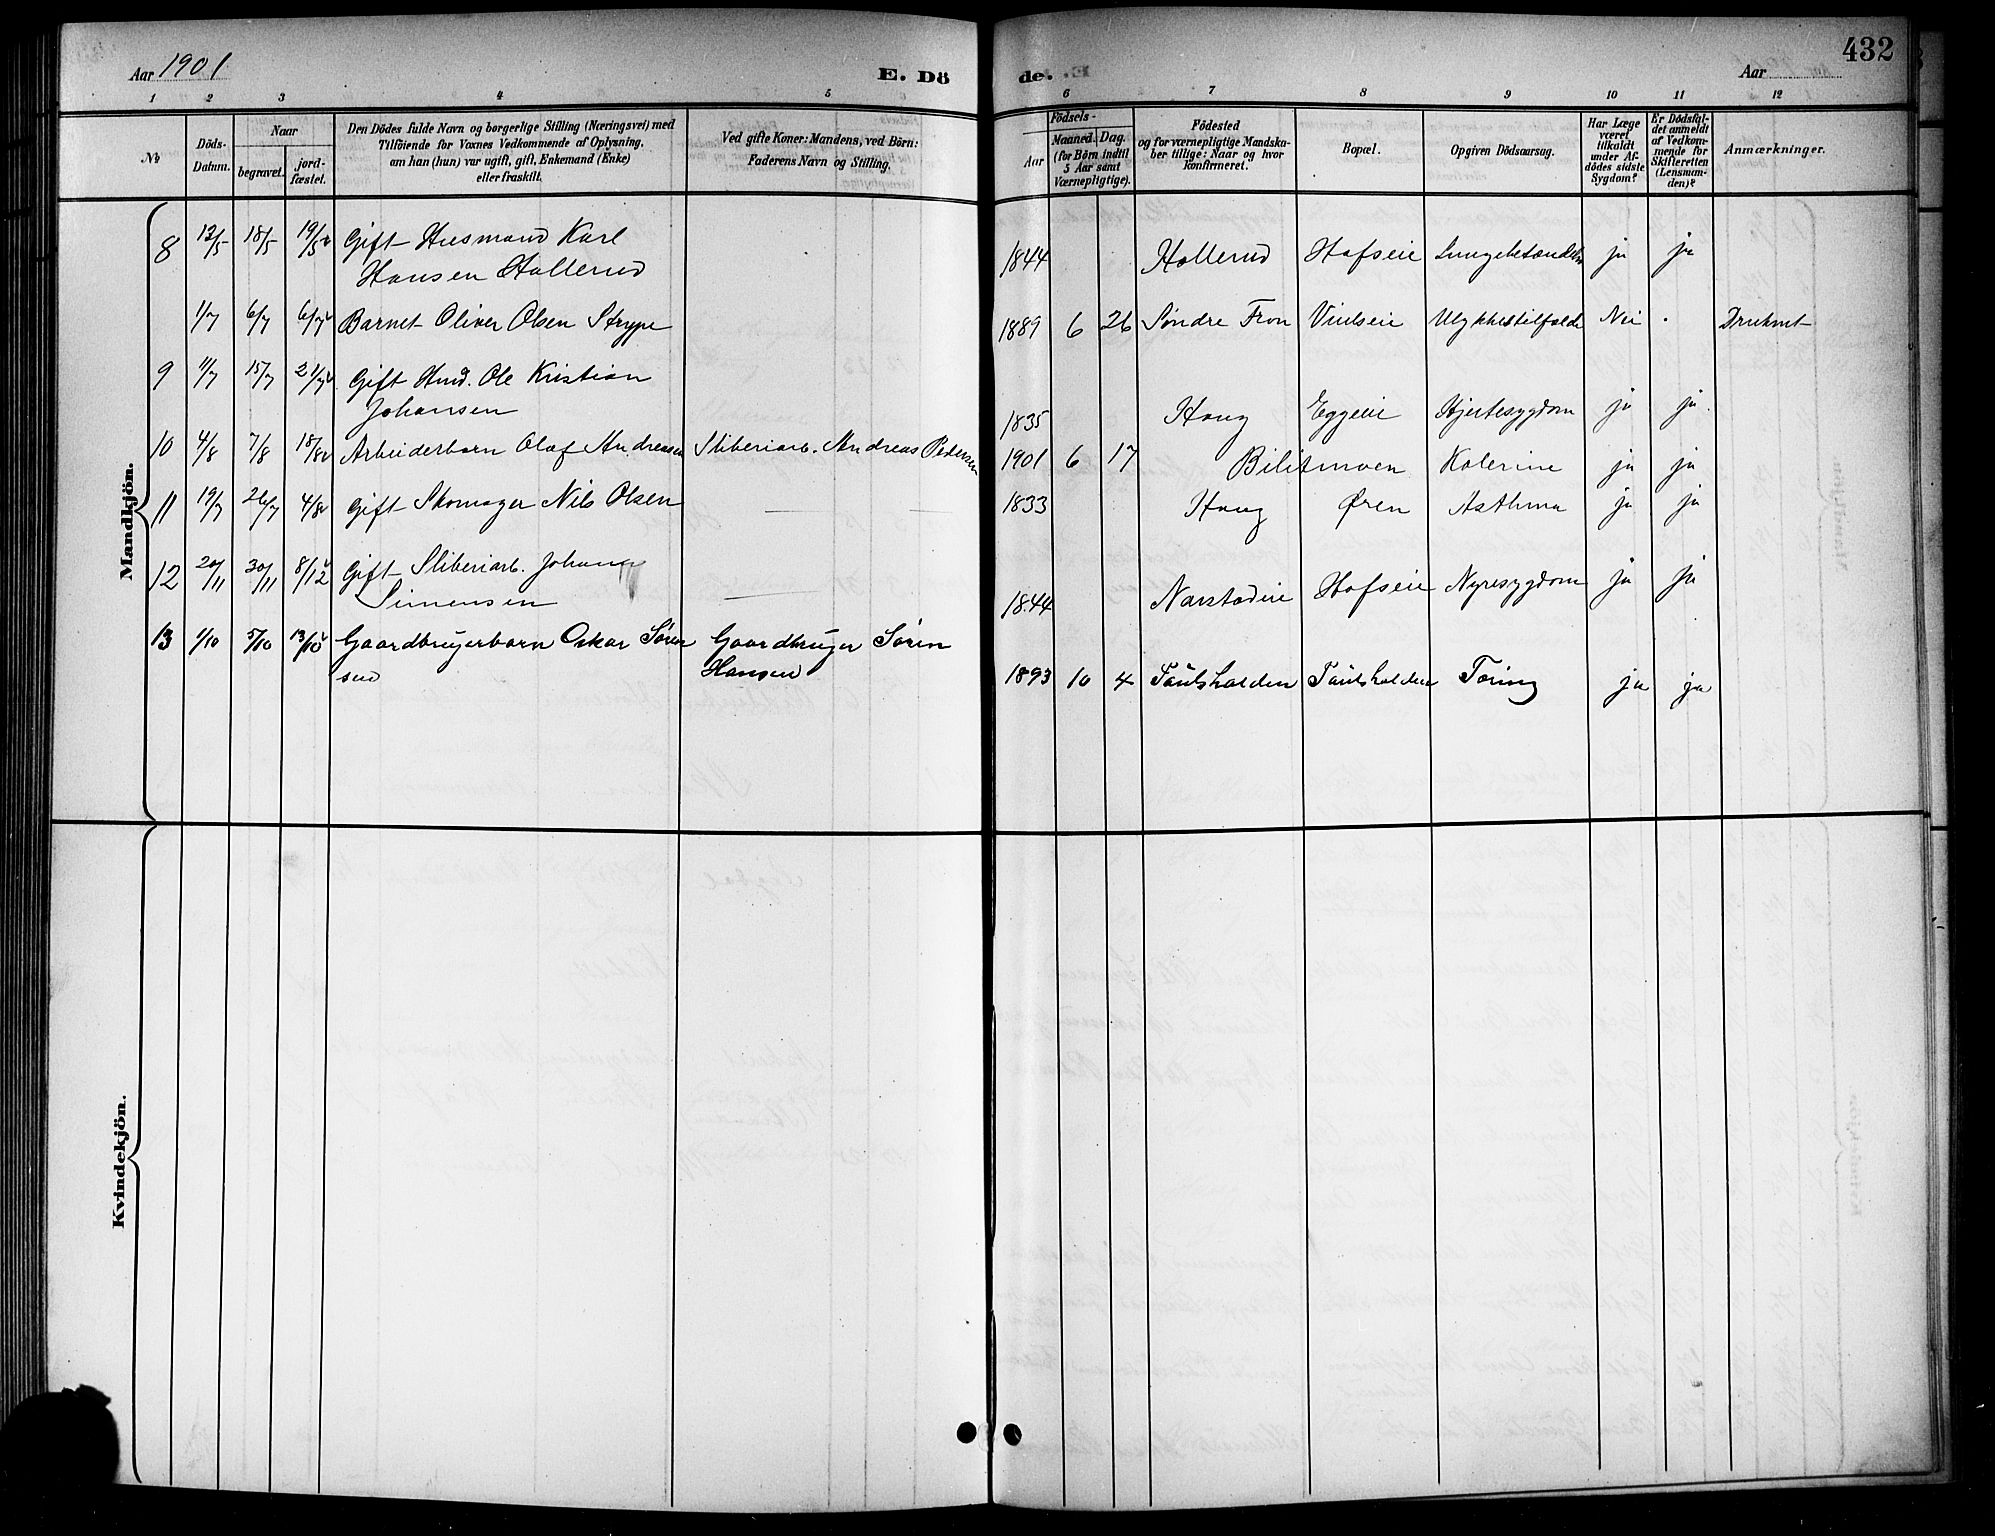 Aar 1901
E. Dö
de.
Aar
432
1 2 3 4 5 6 7 8 9 10 11 12
No
Döds-Datum.
Naar
begravet.
jord-fæstet.
Den Dödes fulde Navn og borgerlige Stilling (Næringsvei) med
Tilföiende for Voxnes Vedkommende af Oplysning,
om han (hun) var ugift, gift, Enkemand (Enke)
eller fraskilt.
Ved gifte Koner: Mandens, ved Börn:
Faderens Navn og Stilling.
Födsels-
Aar
Maaned. Dag.
(for Børn indtil
5 Aar samt
Værnepligtige).
Födested
og for værnepligtige Mandska-
ber tillige: Naar og hvor
konfirmeret.
Bopæl.
Opgiven Dödsaarsag.
Har Læge
været
tilkaldt
under Af-
dödes sidste
Sygdom?
Er Dödsfal-
det anmeldt
af Vedkom-
mende for
Skifteretten
(Lensman-
den)?
Anmærkninger.
Mandkjön.
8 13/5 18/5 19/5 Gift Husmand Karl
Hansen Hollerud
1844 Hollerud Hofseie Lungebetændelse ja ja
1/7 6/7 6/7 Barnet Oliver Olsen Strype
1889 6 26 Søndre Fron Ulykkestilfælde Nei . Druknet
9 11/7 15/7 21/7 Gift Husd. Ole Kristian
Johansen
1835 Haug Eggeeie Hjertesygdom ja ja
10 4/8 7/8 18/8 Arbeiderbarn Olaf Andreasen Sliberiarb. Andreas Pedersen
1901 6 17 Bilitmoen Kolerine ja ja
11 19/7 26/7 4/8 Gift Skomager Nils Olsen
1833 Haug Øren Asthma ja ja
12 20/11 30/11 8/12 Gift Sliberiarb. Johan
Simensen
1844 Hofseie Nyresygdom ja ja
13 1/10 5/10 13/10 Gaardbrugerbarn Oskar Søren
sen
Gaardbruger Søren
Hansen
1893 10 4 Tæring ja ja
Kvindekjön.